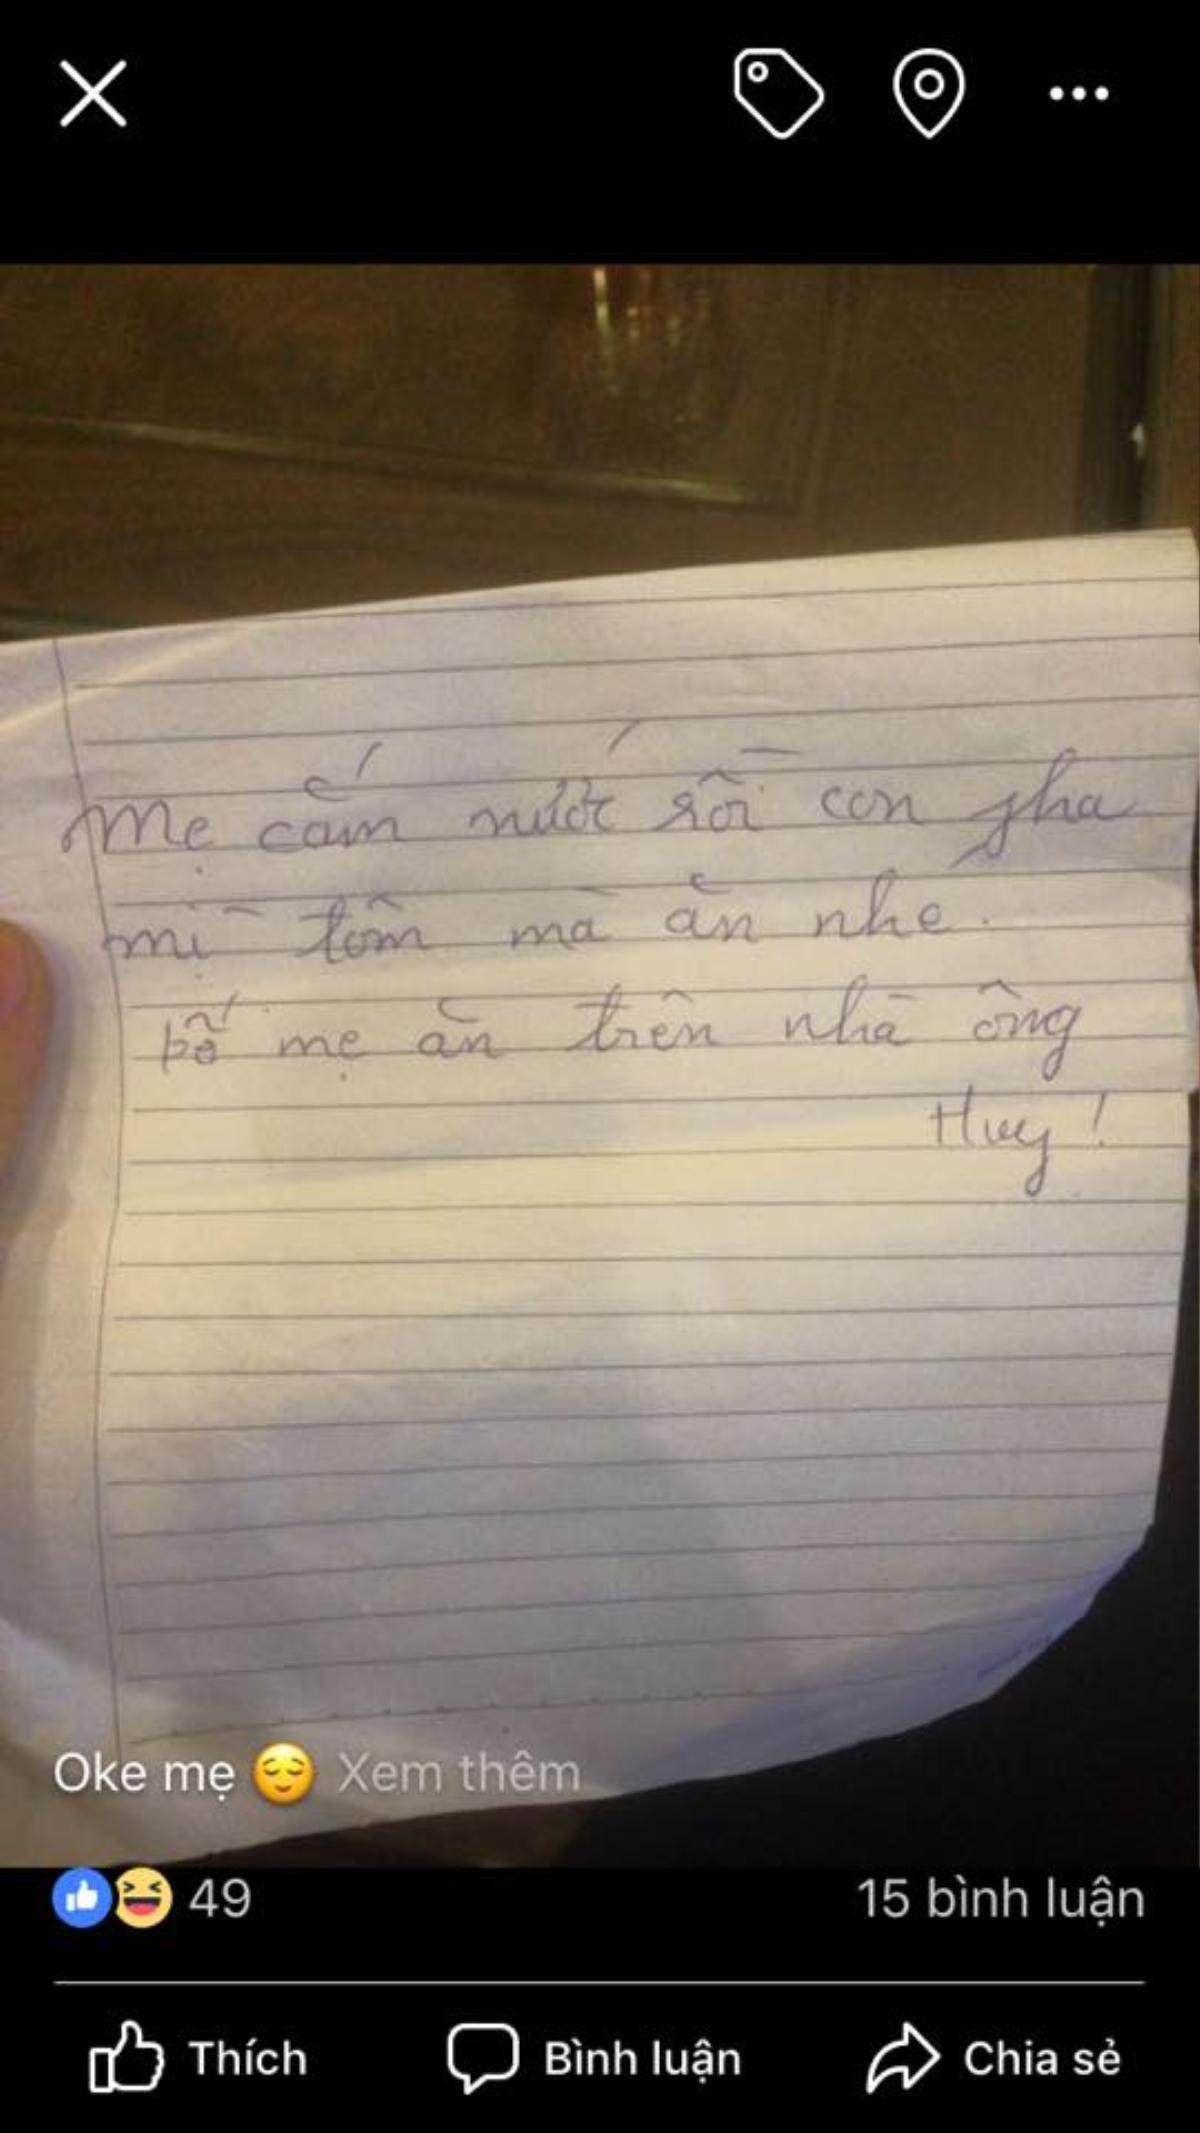 Mẹ cắm nước rồi con pha
mị tôm mà ăn nhe.
bố mẹ ăn trên nhà ông
Huy !
Oke mẹ 😌 Xem thêm
49
15 bình luận
Thích
Bình luận
Chia sẻ